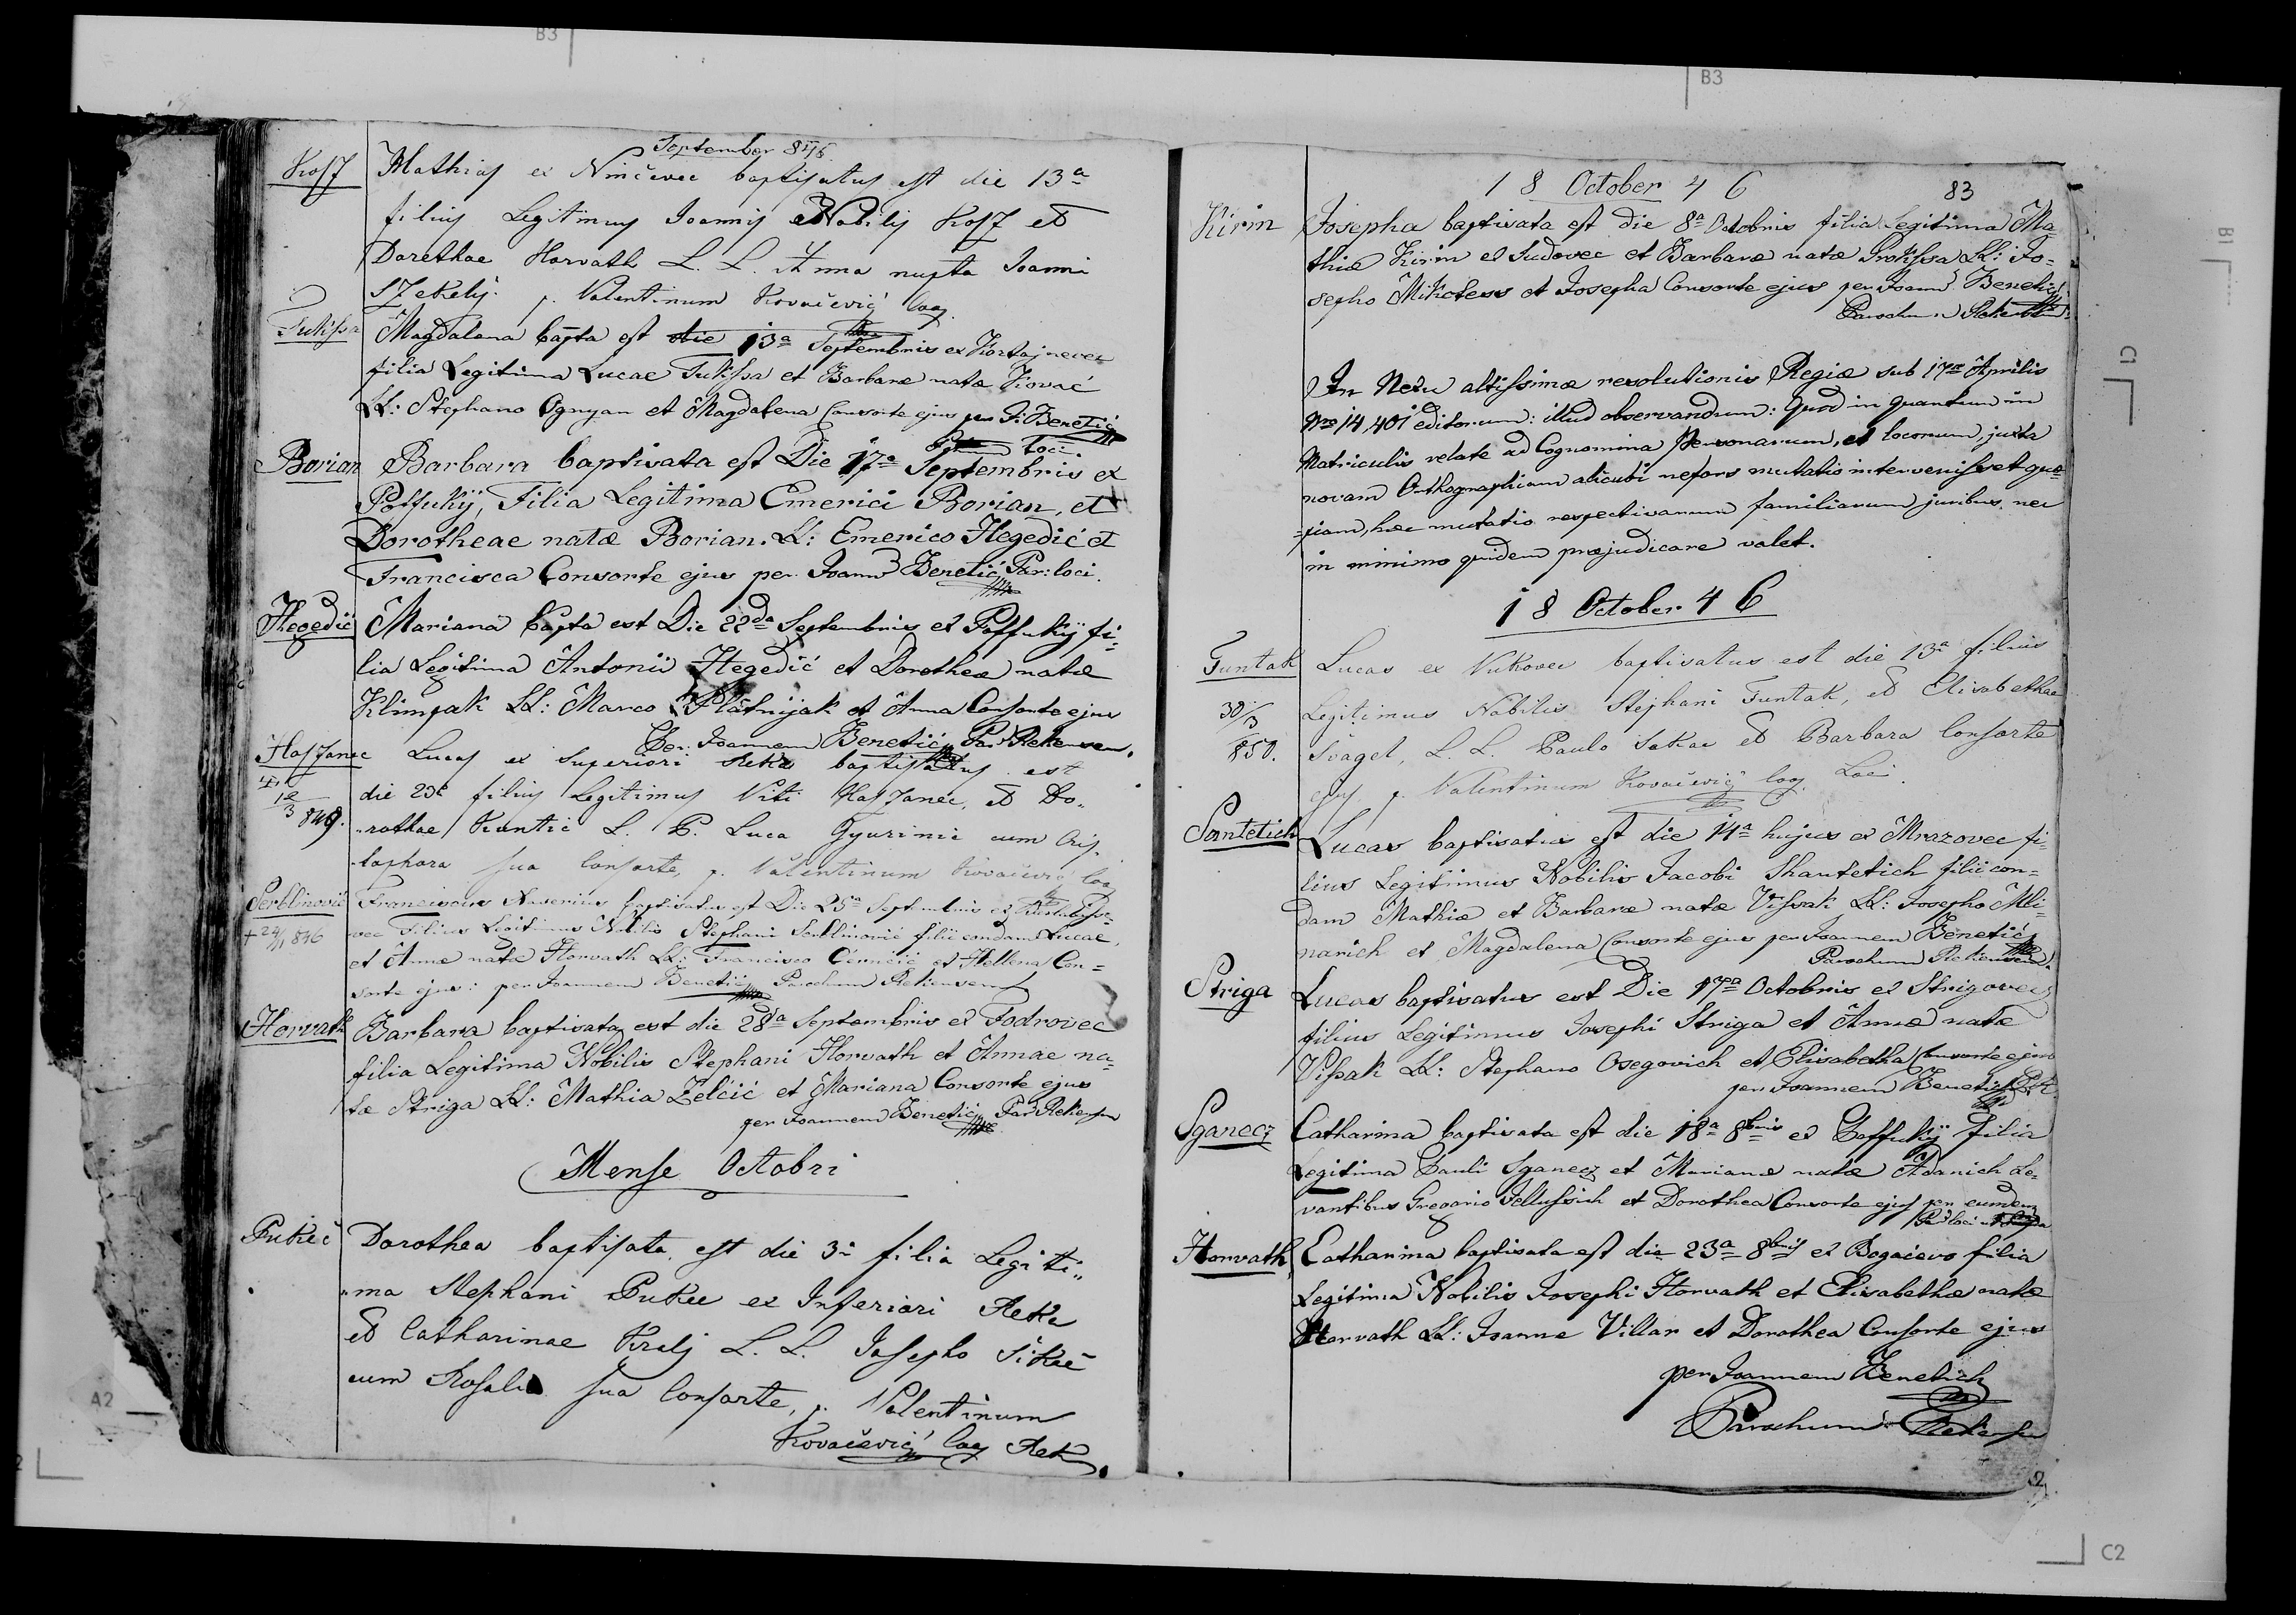 B3
B3
September 846
Kosz Mathias ex Ninčevec baptisatus est die 13a
filius Legitimus Joannis Nobilis Kosz et
Dorotheae Horvath L. L. Anna nupta Joanni
Szekely. p. Valentinum Kovačević Coop.
Tukissa Magdalena bapta est die 13a Septembris ex
filia Legitima Lucae Tukissa et Barbarae natae Kovač
LL: Stephano Ognyan et Magdalena Consorte ejus per J. Benetić
loci.
Borian Barbara baptisata est Die 17a Septembris ex
Poffukÿ, Filia Legitima Emerici Borian, et
Dorotheae natae Borian. LL: Emerico Hegedić et
Francisca Consorte ejus per Joann Benetić Par: loci.
Hegedić Mariana bapta est Die 22da Septembris ex Poffukÿ fi=
lia Legitima Antonii Hegedić et Dorotheae natae
Klimpak LL: Marco Platnijak et Anna Consorte ejus
Per Joannem Benetić Par Rekensem.
Haszanec Lucas ex superiori Reka baptisatus est
12/3 849. die 23a filius Legitimus Viti Haszanec, et Do„
„rotheae Kuntić L. P. Luca Gyurinić cum Cris„
tophora sua Consorte, p. Valentinum Kovačević Coop
Serblinović Franciscus Xaverius baptisatus est Die 25a Septembris ex
+ 24/1 846 vec Filius Legitimus Nobilis Stephani Serblinović filii condam Lucae,
et Annae natae Horvath LL: Francisco Cernčić et Hellena Con=
sorte ejus: per Joannem Benetić Parochum Rekensem
Horvath Barbara baptisata est die 28va Septembris ex Fodrovec
filia Legitima Nobilis Stephani Horvath et Annae na=
tae Striga LL: Mathia Zelčić et Mariana Consorte ejus
per Joannem Benetić Par Rekensem
Mense Octobri
Pukeč Dorothea baptisata est die 3a filia Legiti„
„ma Stephani Pukec ex Inferiori Reka
et Catharinae Kralj L. L. Josepho Sikač
cum Rosalia sua Consorte, p. Valentinum
Kovačević Coop Rek.
18 October 46
83
Kirin Josepha baptisata est die 8a Octobris filia Legitima Ma=
thiae Kirin ex Sudovec et Barbarae natae Prokssa LL: Jo=
sepho Mikoless et Josepha Consorte ejus per Joann Benetich
Parochum Rekensem
In Nexu altissimae resolutionis Regiae sub 17ma Aprilis
Nro 14,401 editorum: illud observandum: Quod in quantum in
Matriculis relate ad Cognomina Personarum, et locorum, juxta
novam Orthographiam alicubi nefors mutatio intervenisset quo=
=piam, haec mutatio respectivarum familiarum juribus nec
in minimo quidem praejudicare valet.
18 October 46
Funtak Lucas ex Vukovec baptisatus est die 13a filius
30/3 850. Legitimus Nobilis Stephani Funtak, et Elisabethae
Svagel, L. L. Paulo Sakac et Barbara Consorte
ejus p. Valentinum Kovačević Coop. Loci.
Santetich Lucas baptisatus est die 14a hujus ex Mrazovec fi=
lius Legitimus Nobilis Jacobi Shantetich filii con=
dam Mathiae et Barbarae natae Vissak LL: Josepho Mli=
narich et Magdalena Consorte ejus per Joannem Benetić
Parochum Rekensem.
Striga Lucas baptisatus est Die 17ma Octobris ex Strigovecz
filius Legitimus Josephi Striga et Annae natae
Vissak LL: Stephano Osegovich et Elisabetha Consorte ejus
per Joannem Benetich
Sganecz Catharina baptisata est die 18a 8bris ex Poffukÿ filia
Legitima Pauli Sganecz et Marianae natae Adanich Le=
vantibus Gregorio Jellussich et Dorothea Consorte ejus per eundem
Par loci
Horvath Catharina baptisata est die 23a 8bris ex Bogačevo filia
Legitima Nobilis Josephi Horvath et Elisabethae natae
Horvath LL: Joanne Villar et Dorothea Consorte ejus
per Joannem Benetich
Parochum Rekensem
B1
C1
A2
C2